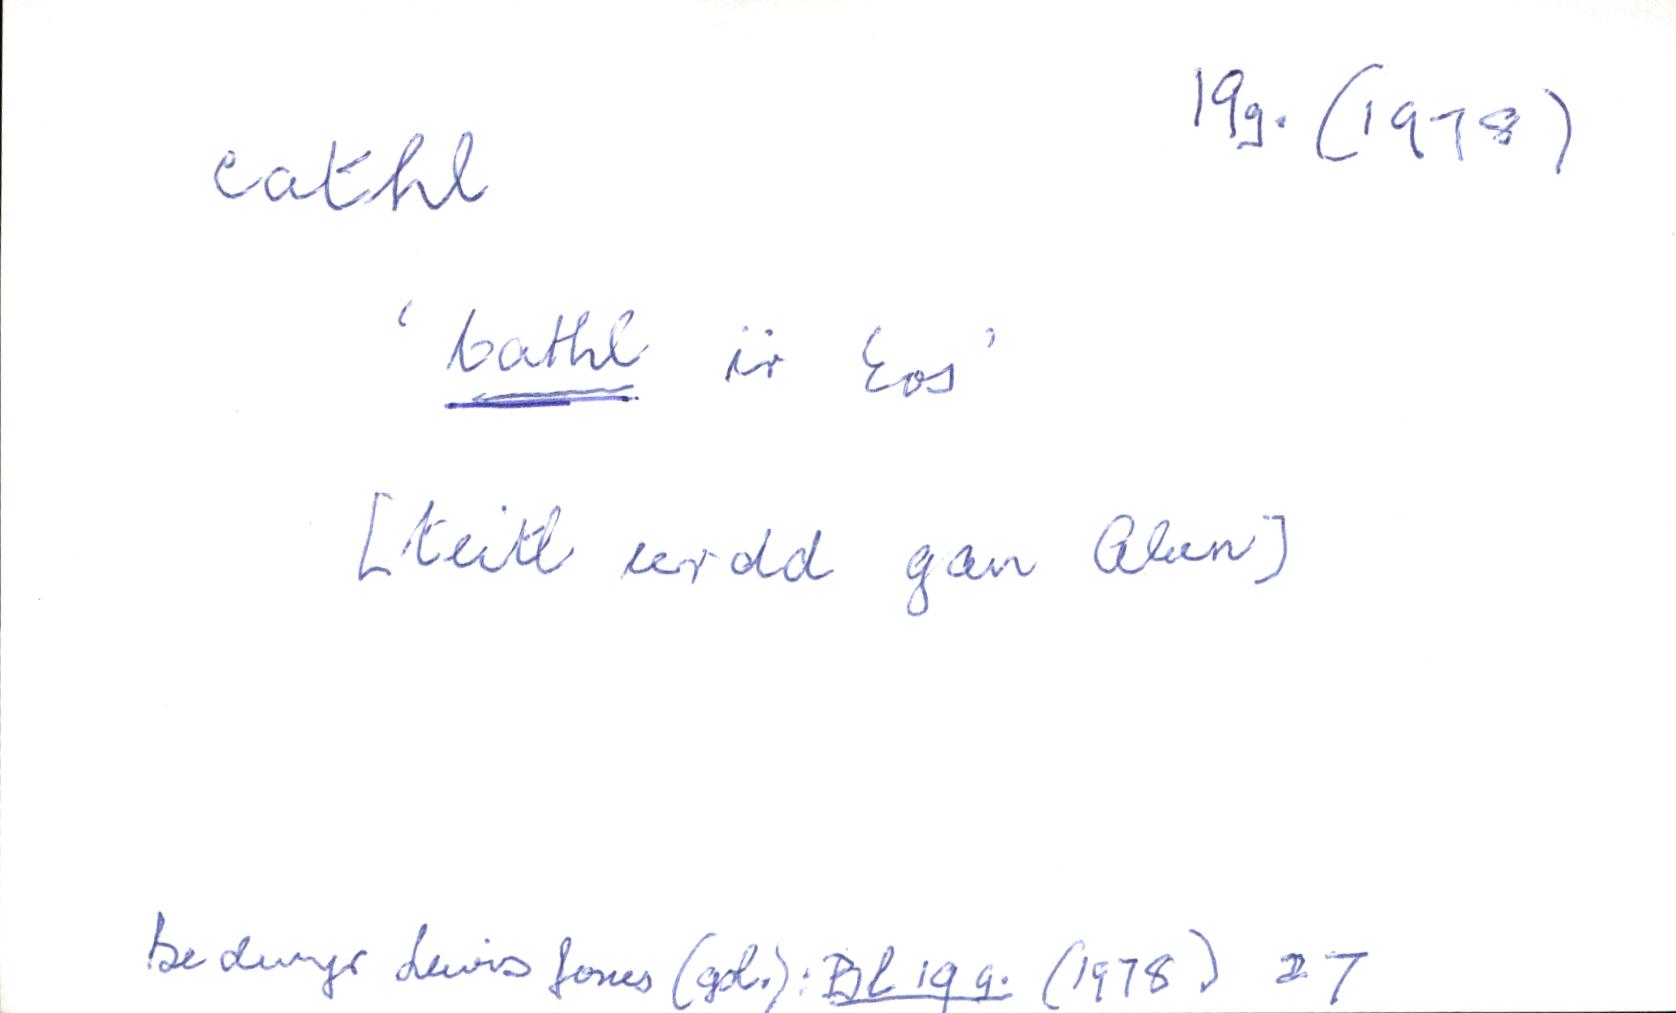 19g. (1978)
cathl
'Cathl i'r Eos'
[teitl cerdd gan Alun]
Bedwyr Lewis Jones (gol.): Bl 19g. (1978) 27